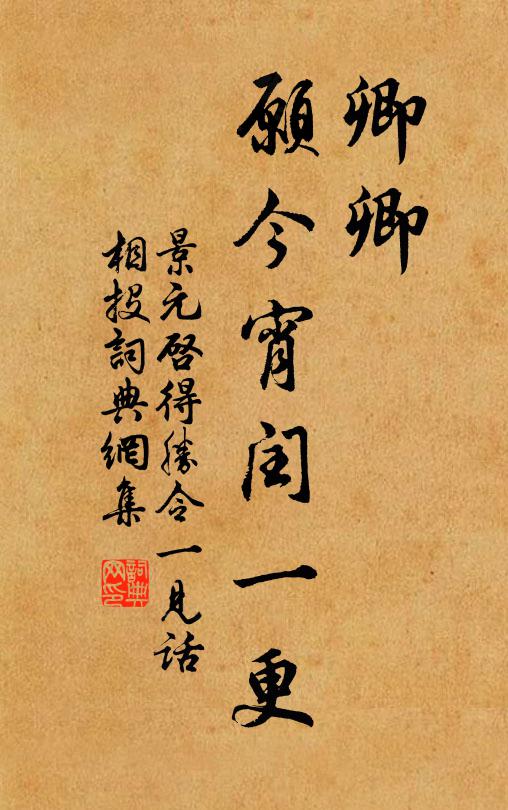 卿卿
願今宵閏一更
景元啓得勝令一見話
相投詞典網集
詞典
网印